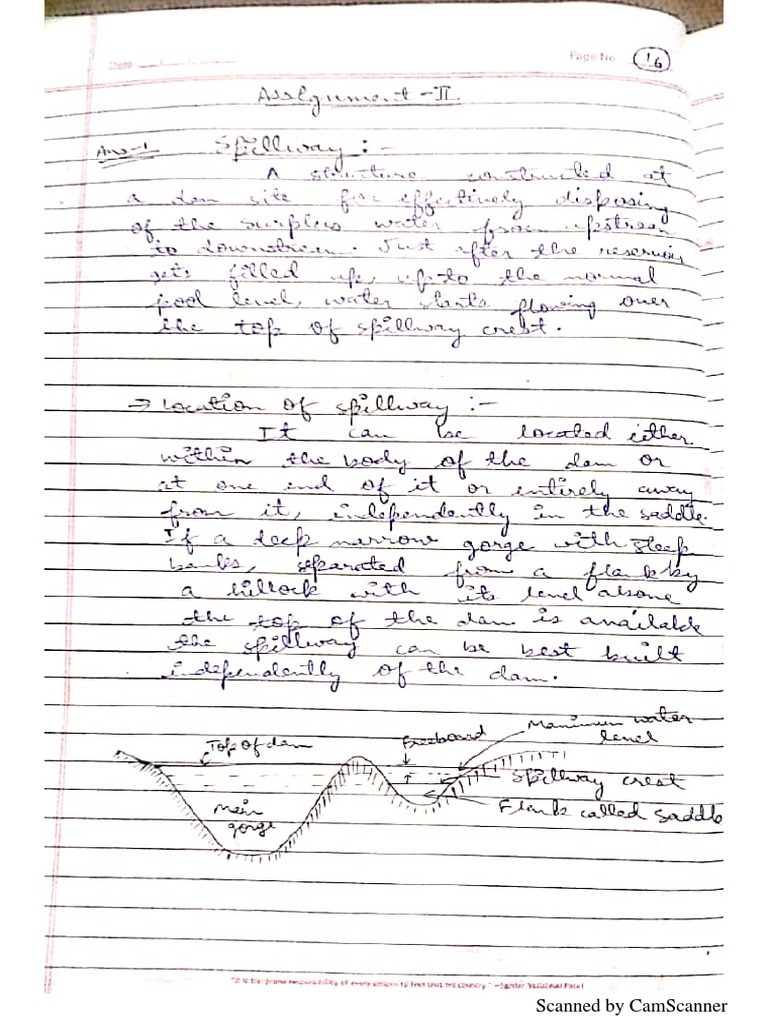 Page No. 16
Assignment - II
Ans-1 Spillway :-
A structure constructed at
a dam site for effectively disposing
of the surplus water from upstream
to downstream. Just after the reservoir
gets filled up, upto the normal
pool level, water starts flowing over
the top of spillway crest.
→ Location of spillway :-
It can be located either
within the body of the dam or
at one end of it or entirely away
from it, independently in the saddle.
If a deep narrow gorge with steep
banks, separated from a flank by
a hillock with its level above
the top of the dam is available
the spillway can be best built
independently of the dam.
Top of dam
Freeboard
Maximum water
level
Spillway crest
Main
gorge
Flank called saddle
"It is the prime responsibility of every citizen to feel that his country." -Sardar Vallabhai Patel
Scanned by CamScanner